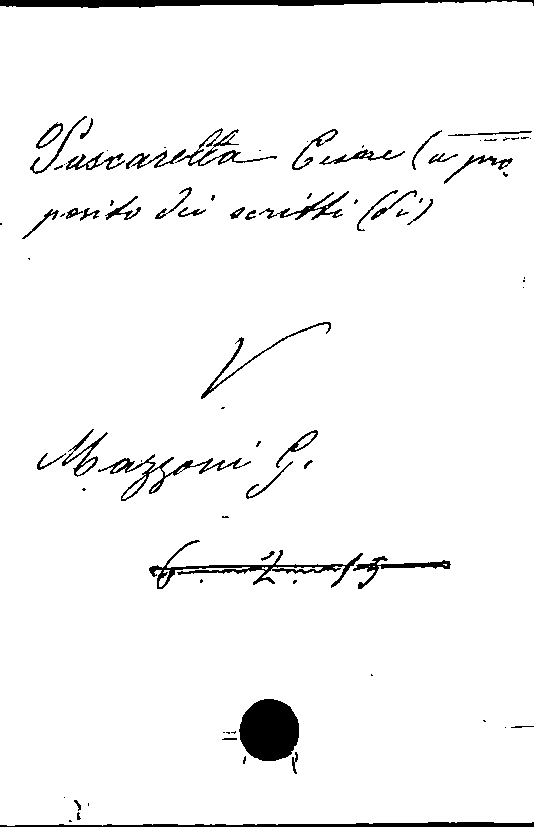 Pascarella Cesare (a pro-
posito dei scritti (di)
V
Mazzoni G.
6. 2. 15